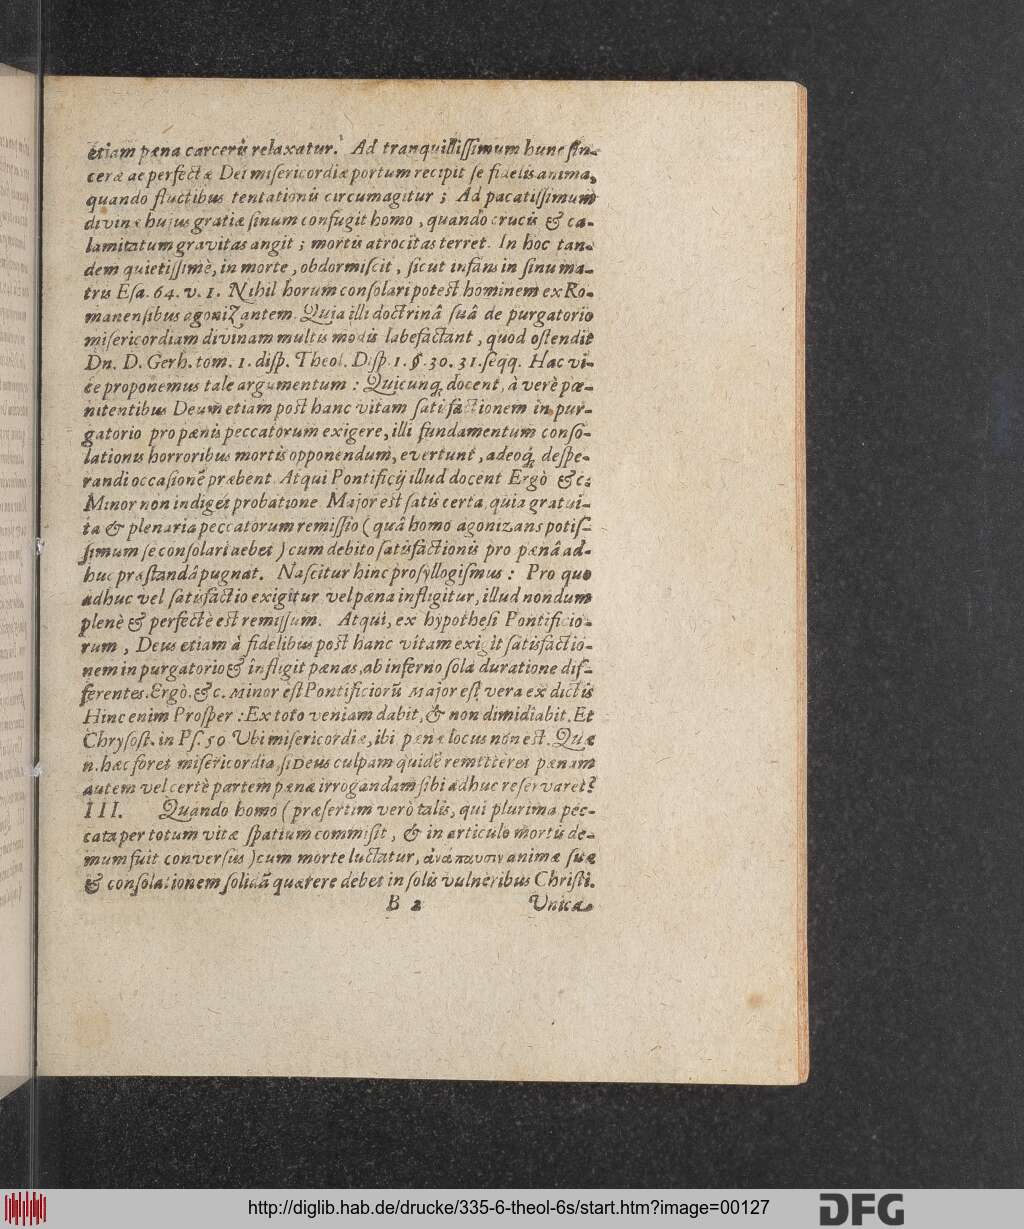 etiam pœna carceris relaxatur. Ad tranquillissimum hunc sin-
ceræ ac perfectæ Dei misericordiæ portum recipit se fidelis anima,
quando fluctibus tentationis circumagitur; Ad pacatissimum
divinæ hujus gratiæ sinum confugit homo, quando crucis & ca-
lamitatum gravitas angit; mortis atrocitas terret. In hoc tan-
dem quietissimè, in morte, obdormiscit, sicut infans in sinu ma-
tris Esa. 64. v. 1. Nihil horum consolari potest hominem ex Ro-
manensibus agonizantem. Quia illi doctrinâ suâ de purgatorio
misericordiam divinam multis modis labefactant, quod ostendit
Dn. D. Gerh. tom. 1. disp. Theol. Disp. 1. §. 30. 31. seqq. Hac vi-
ce proponemus tale argumentum: Quicunq; docent, à verè pœ-
nitentibus Deum etiam post hanc vitam satisfactionem in pur-
gatorio pro pœnis peccatorum exigere, illi fundamentum conso-
lationis horroribus mortis opponendum, evertunt, adeoq; despe-
randi occasionẽ præbent. Atqui Pontificij illud docent Ergò &c.
Minor non indiget probatione Major est satis certa, quia gratui-
ta & plenaria peccatorum remissio (quâ homo agonizans potis-
simum se consolari debet) cum debito satisfactionis pro pœnâ ad-
huc præstandâ pugnat. Nascitur hinc prosyllogismus: Pro quo
adhuc vel satisfactio exigitur vel pœna infligitur, illud nondum
plenè & perfectè est remissum. Atqui, ex hypothesi Pontificio-
rum, Deus etiam à fidelibus post hanc vitam exigit satisfactio-
nem in purgatorio & infligit pœnas, ab inferno sola duratione dif-
ferentes. Ergò. &c. Minor est Pontificiorũ Major est vera ex dictis
Hinc enim Prosper: Ex toto veniam dabit, & non dimidiabit. Et
Chrysost. in Ps. 50 Ubi misericordia, ibi pœnæ locus non est. Quæ
n. hæc foret misericordia, si Deus culpam quidẽ remitteret pœnam
autem vel certè partem pœnæ irrogandam sibi adhuc reservaret?
III. Quando homo (præsertim verò talis, qui plurima pec-
cata per totum vitæ spatium commisit, & in articulo mortis de-
mum fuit conversus) cum morte luctatur, ἀνάπαυσιν animæ suæ
& consolationem solidã quærere debet in solis vulneribus Christi.
B 2 Unica
http://diglib.hab.de/drucke/335-6-theol-6s/start.htm?image=00127
DFG